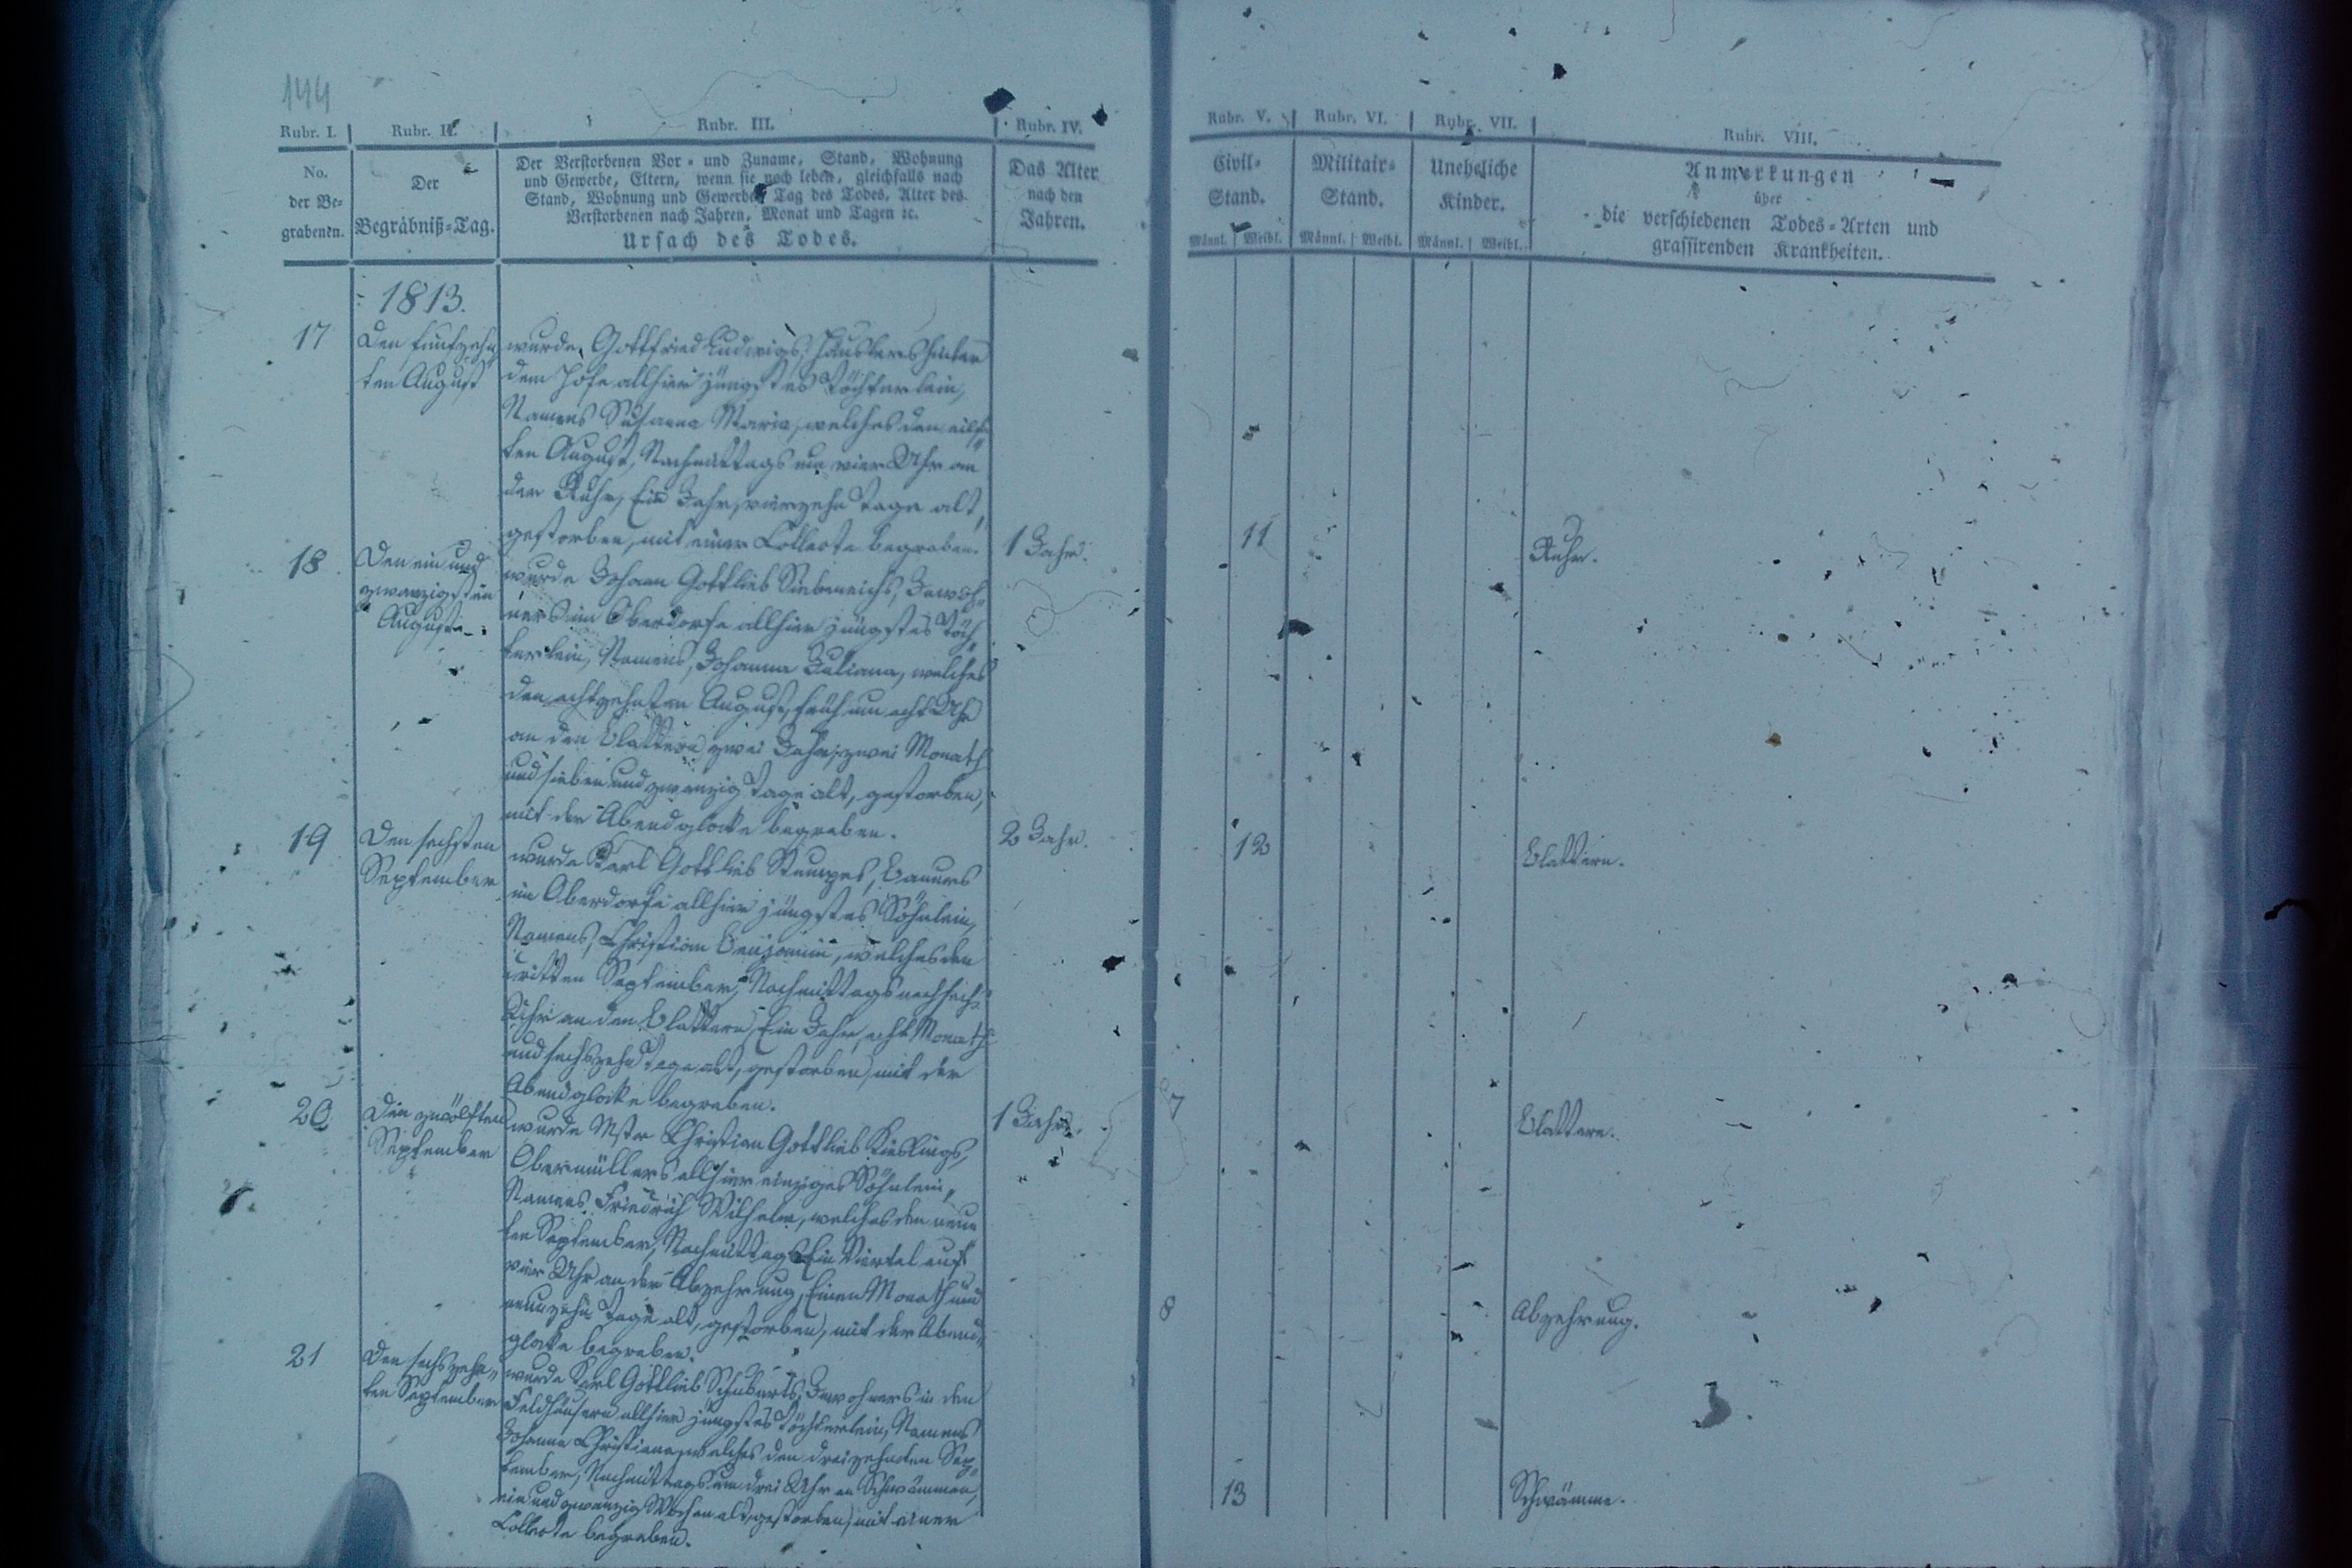 144
Rubr. I. Rubr. II. Rubr. III. Rubr. IV. Rubr. V. Rubr. VI. Rubr. VII. Rubr. VIII.
No.
der Be=
grabenen.
Der
Begräbniß=Tag.
Der Verstorbenen Vor= und Zuname, Stand, Wohnung
und Gewerbe, Eltern, wenn sie noch leben, gleichfalls nach
Stand, Wohnung und Gewerbe, Tag des Todes, Alter des
Verstorbenen nach Jahren, Monat und Tagen ꝛc.
Ursach des Todes.
Das Alter
nach den
Jahren.
Civil=
Stand.
Männl. Weibl.
Militair=
Stand.
Männl. Weibl.
Uneheliche
Kinder.
Männl. Weibl.
Anmerkungen
über
die verschiedenen Todes=Arten und
grassirenden Krankheiten.
1813.
17
Den funfzehn
ten August
wurde, Gottfried Ludwigs, Häuslers hinter
dem Hofe allhier jüngstes Töchterlein,
Namens Susanna Maria, welches den eilf=
ten August, Nachmittags um vier Uhr an
der Ruhr, Ein Jahr, vierzehn Tage alt,
gestorben, mit einer Collecte begraben.
1 Jahr.
11
Ruhr.
18
Den ein und
zwanzigsten
August.
wurde Johann Gottlieb Siebeneichs, Inwoh=
ners im Oberdorfe allhier jüngstes Töch=
terlein, Namens, Johanna Juliana, welches
den achtzehnten August, früh um acht Uhr
an den Blattern zwei Jahr, zwei Monath
und sieben und zwanzig Tage alt, gestorben,
mit der Abendglocke begraben.
2 Jahr.
12
Blattern.
19
Den sechsten
September
wurde Karl Gottlieb Stumpes, Bauers
im Oberdorfe allhier jüngstes Söhnlein,
Namens, Christian Benjamin, welches den
dritten September, Nachmittags nach sechs
Uhr an den Blattern, Ein Jahr, acht Monath
und sechszehn Tage alt, gestorben, mit der
Abendglocke begraben.
1 Jahr.
7
Blattern.
20
Den zwölften
September
wurde Mstr Christian Gottlieb Kießlings,
Obermüllers allhier einziges Söhnlein,
Namens Friedrich Wilhelm, welches den neun
ten September, Nachmittags Ein Viertel auf
vier Uhr an der Abzehrung, Einen Monath und
neunzehn Tage alt, gestorben, mit der Abend=
glocke begraben.
8
Abzehrung.
21
Den sechszehn=
ten September
wurde Karl Gottlieb Schuberts, Inwohners in den
Feldhäusern allhier jüngstes Töchterlein, Namens
Johanna Christiana, welches den dreizehnten Sep=
tember, Nachmittags um drei Uhr an Schwämmen,
ein und zwanzig Wochen alt, gestorben, mit einer
Collecte begraben.
13
Schwämme.